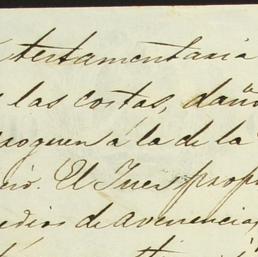 testamentaria
las costas, dañ
roguen a la de la
cio. El Juez prop
edios de avenencia,